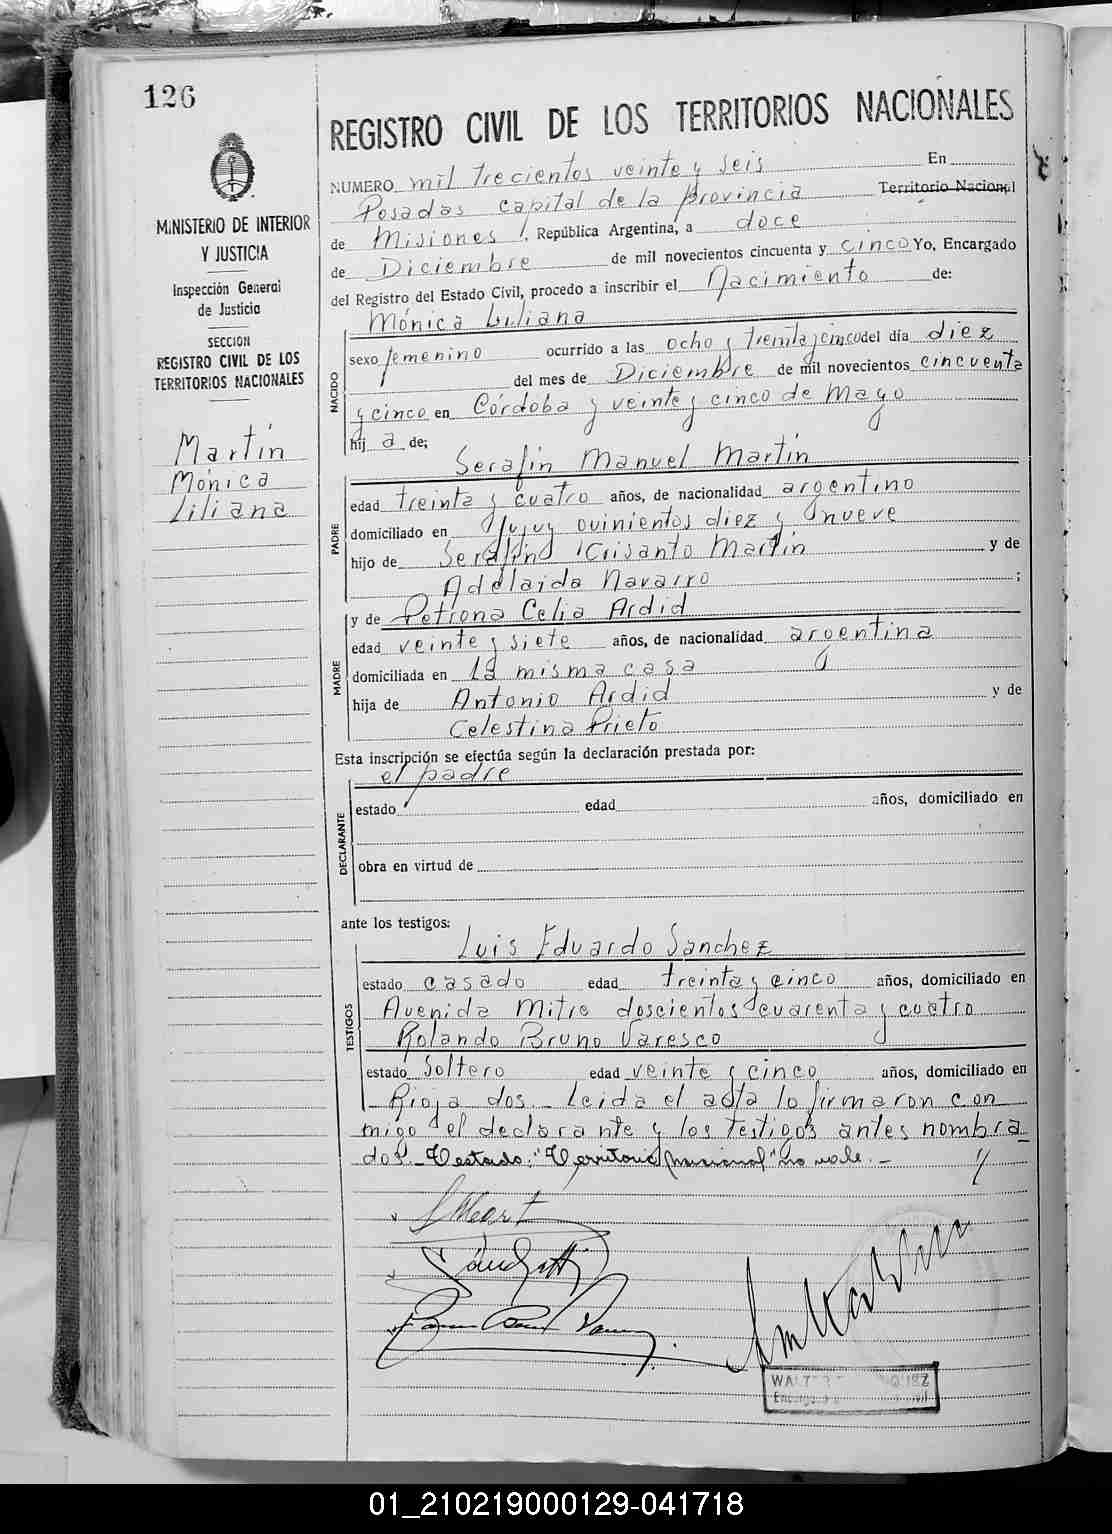 126
MINISTERIO DE INTERIOR
Y JUSTICIA
Inspección General
de Justicia
SECCION
REGISTRO CIVIL DE LOS
TERRITORIOS NACIONALES
Martín
Mónica
Liliana
REGISTRO CIVIL DE LOS TERRITORIOS NACIONALES
NUMERO mil trecientos veinte y seis En
Posadas capital de la provincia Territorio Nacional
de Misiones, República Argentina, a doce
de Diciembre de mil novecientos cincuenta y cinco Yo, Encargado
del Registro del Estado Civil, procedo a inscribir el Nacimiento de:
Mónica Liliana
NACIDO
sexo femenino ocurrido a las ocho y treinta y cinco del día diez
del mes de Diciembre de mil novecientos cincuenta
y cinco en Córdoba y veinte y cinco de Mayo
hij a de;
Serafín Manuel Martín
PADRE
edad treinta y cuatro años, de nacionalidad argentino
domiciliado en Jujuy quinientos diez y nueve
hijo de Serafín Crisanto Martín y de
Adelaida Navarro ;
y de Petrona Celia Ardid
MADRE
edad veinte y siete años, de nacionalidad argentina
domiciliada en la misma casa
hija de Antonio Ardid y de
Celestina Prieto
Esta inscripción se efectúa según la declaración prestada por:
el padre
DECLARANTE
estado edad años, domiciliado en
obra en virtud de
ante los testigos:
Luis Eduardo Sanchez
TESTIGOS
estado casado edad treinta y cinco años, domiciliado en
Avenida Mitre doscientos cuarenta y cuatro
Rolando Bruno Varesco
estado Soltero edad veinte y cinco años, domiciliado en
Rioja dos.- Leida el acta lo firmaron con
migo el declarante y los testigos antes nombra
dos.- Testado: "Territorio Nacional" no vale.-
WALTER
01_210219000129-041718